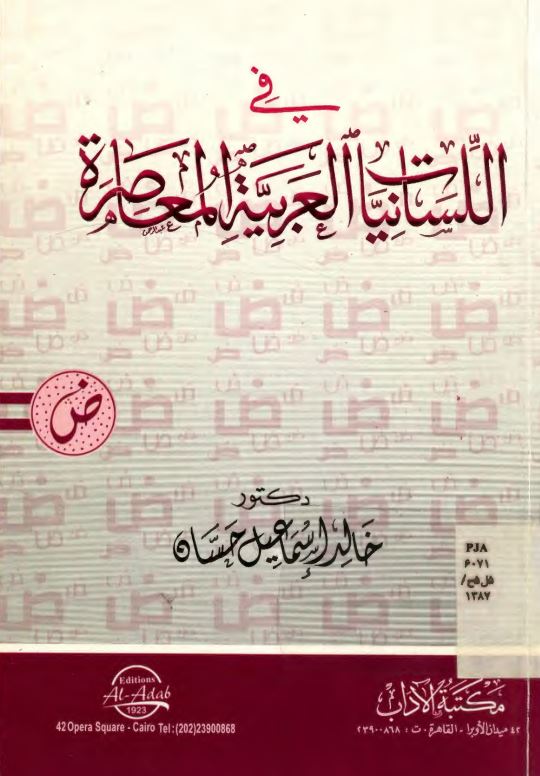 في
اللسانيات العربية المعاصرة
ض
دكتور
خالد إسماعيل حسان
PJA
۶۰۷۱
۱۳۸۷
Editions
Al-Adab
1923
42 Opera Square - Cairo Tel:(202)23900868
مكتبة الآداب
٤٢ ميدان الأوبرا - القاهرة - ت : ٢٣٩٠٠٨٦٨